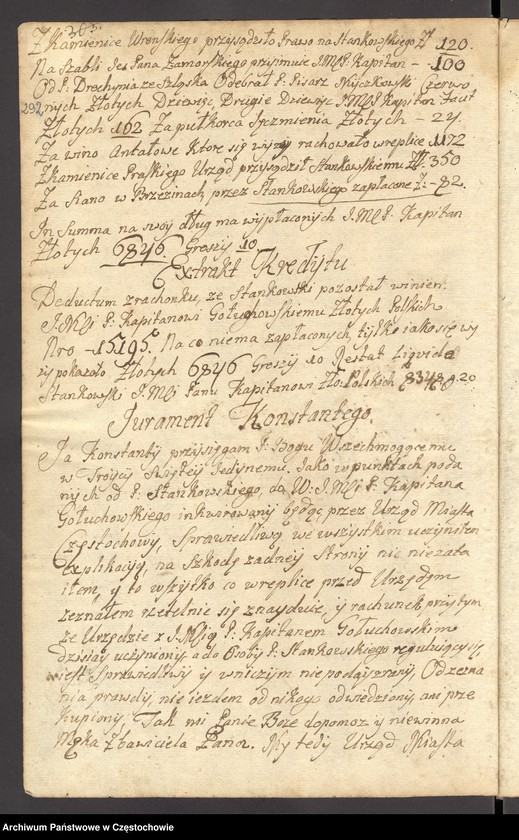 Z Kamienice Wronskiego przysądziło Prawo na Stankowskiego Zł 120.
Na Szabli Jes Pana Zamoyskiego przyimuie J.M.P. Kapitan – 100
Od P. Drechynia ze Szląska Odebrał P. Pisarz Czerwo
292
nych Złotych Dziewięć, Drugie Dziewięć J.M.P. Kapitan facit
Złotych 162 Za pułkorca Jęczmienia Złotych – 24.
Za wino Antałowe Ktore się wyzy rachowało w replice 1172
Z Kamienice Praskiego Urząd przysądził Stankowskiemu Zł 350
Za Siano w Brzezinach, przez Stankowskiego zapłacone Z: – 82.
In Summa na swoy dług ma wypłaconych J.MP. Kapitan
Złotych 6846. Groszy 10
Extrakt Kredytu
Deductum z rachonku, ze Stankowski pozostał winien
J.MCi P. Kapitanowi Gołuchowskiemu Złotych Polskich
Nro – 15195. Na co niema zapłaconych, tylko iako się wy
zy pokazało Złotych 6846 Groszy 10 Jest at Liqvide
Stankowski J.MCi Panu Kapitanowi Zło: Polskich 8348 g. 20
Jurament Konstantego.
Ja Konstanty przysięgam P. Bogu Wszechmogącemu
w Troycy Swiętey Jedynemu. Jako w punktach poda
nych od P. Stankowskiego, do W: J.MCi P. Kapitana
Gołuchowskiego inkwirowany będąc przez Urząd Miasta
Częstochowy, Sprawiedliwą we wszystkim uczyniłem
Explikacyią, na Szkodę zadney Strony nic nie zata
iłem, y to wszytko co w replice przed Urzędem
zeznałem rzetelnie się znayduie, y rachunek przytym
ze Urzędzie z J.Mcią P. Kapitanem Gołuchowskim
dzisiay uczyniony, a do Osoby P. Stankowskiego reguluiący się,
iest Sprawiedliwy y w niczym nie podayzrany, Od zezna
nia prawdy, nie iezdem od nikogo odwiedziony, ani prze
kupiony. Tak mi Panie Boze dopomoz y niewinna
Męka Zbawiciela Pana. My tedy Urząd Miasta
Archiwum Państwowe w Częstochowie